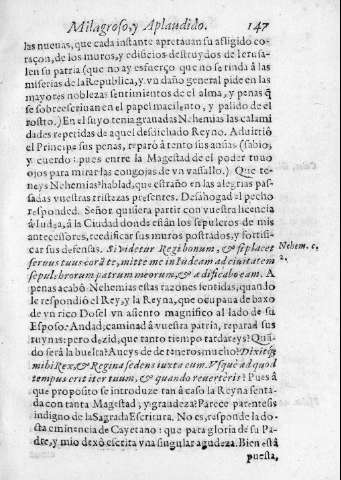 Milagroso, y Aplaudido. 147
las nueuas, que cada instante apretauan su afligido co-
raçon, de los muros, y edificios destruydos de Ierusa-
len su patria (que no ay esfuerço que no se rinda à las
miserias de la Republica, y vn daño general pide en las
mayores noblezas sentimientos de el alma, y penas q̃
se sobreescriuan en el papel macilento, y palido de el
rostro.) En el suyo tenia granadas Nehemias las calami
dades repetidas de aquel desdichado Reyno. Aduirtiò
el Principe sus penas, reparò atento sus ansias (sabio,
y cuerdo: pues entre la Magestad de el poder tuuo
ojos para mirar las congojas de vn vassallo.) Que te-
neys Nehemias? hablad, que estraño en las alegrias pas-
sadas vuestras tristezas presentes. Desahogad el pecho
responded. Señor quisiera partir con vuestra licencia
à Iudea, à la Ciudad donde estàn los sepulcros de mis
antecessores, reedificar sus muros postrados, y fortifi-
car sus defensas. Si videtur Regi bonum, & si placet
seruus tuus corã te, mitte me in Iudeam ad ciuitatem
sepulchrorum patrum meorum, & ædificabo eam. A
Nehem. c.
2.
penas acabò Nehemias estas razones sentidas, quando
le respondiò el Rey, y la Reyna, que ocupaua de baxo
de vn rico Dosel vn asiento magnifico al lado de su
Esposo: Andad; caminad à vuestra patria, reparad sus
ruynas: pero dezid, que tanto tiempo tardareys? Quã-
do serà la buelta? Aueys de deteneros mucho? Dixitq;
mihi Rex, & Regina sedens iuxta eum. Vsquè ad quod
tempus erit iter tuum, & quando reuertèris? Pues à
que proposito se introduze tan à caso la Reyna senta-
da con tanta Magestad, y grandeza? Parece parentesis
indigno de la Sagrada Escritura. No es, responde la do-
cta eminencia de Cayetano: que para gloria de su Pa-
dre, y mio dexò escrita vna singular agudeza. Bien està
puesta,